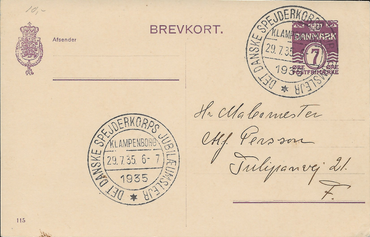 10,-
BREVKORT.
Afsender
DANMARK
7
ØRE ØRE
POSTFRIMÆRKE
DET DANSKE SPEJDERKORPS JUBILÆUMSLEJR
KLAMPENBORG
29.7.35. 6-7
1935
DET DANSKE SPEJDERKORPS JUBILÆUMSLEJR
KLAMPENBORG
29.7.35. 6-7
1935
Hr. Malermester
Alf Persson
Tulipanvej 21.
F.
115